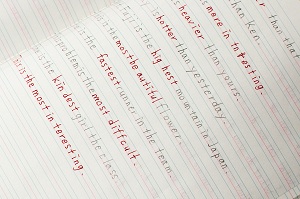 er than the
than Ken.
is more in teresting.
is heavier than yours.
hotter than yesterday.
is the big hest mountain in Japan.
the most beautiful flower.
the fastest runner in the team.
problem is the most difficult.
is the kin dest girl the class.
is the most in teresting.